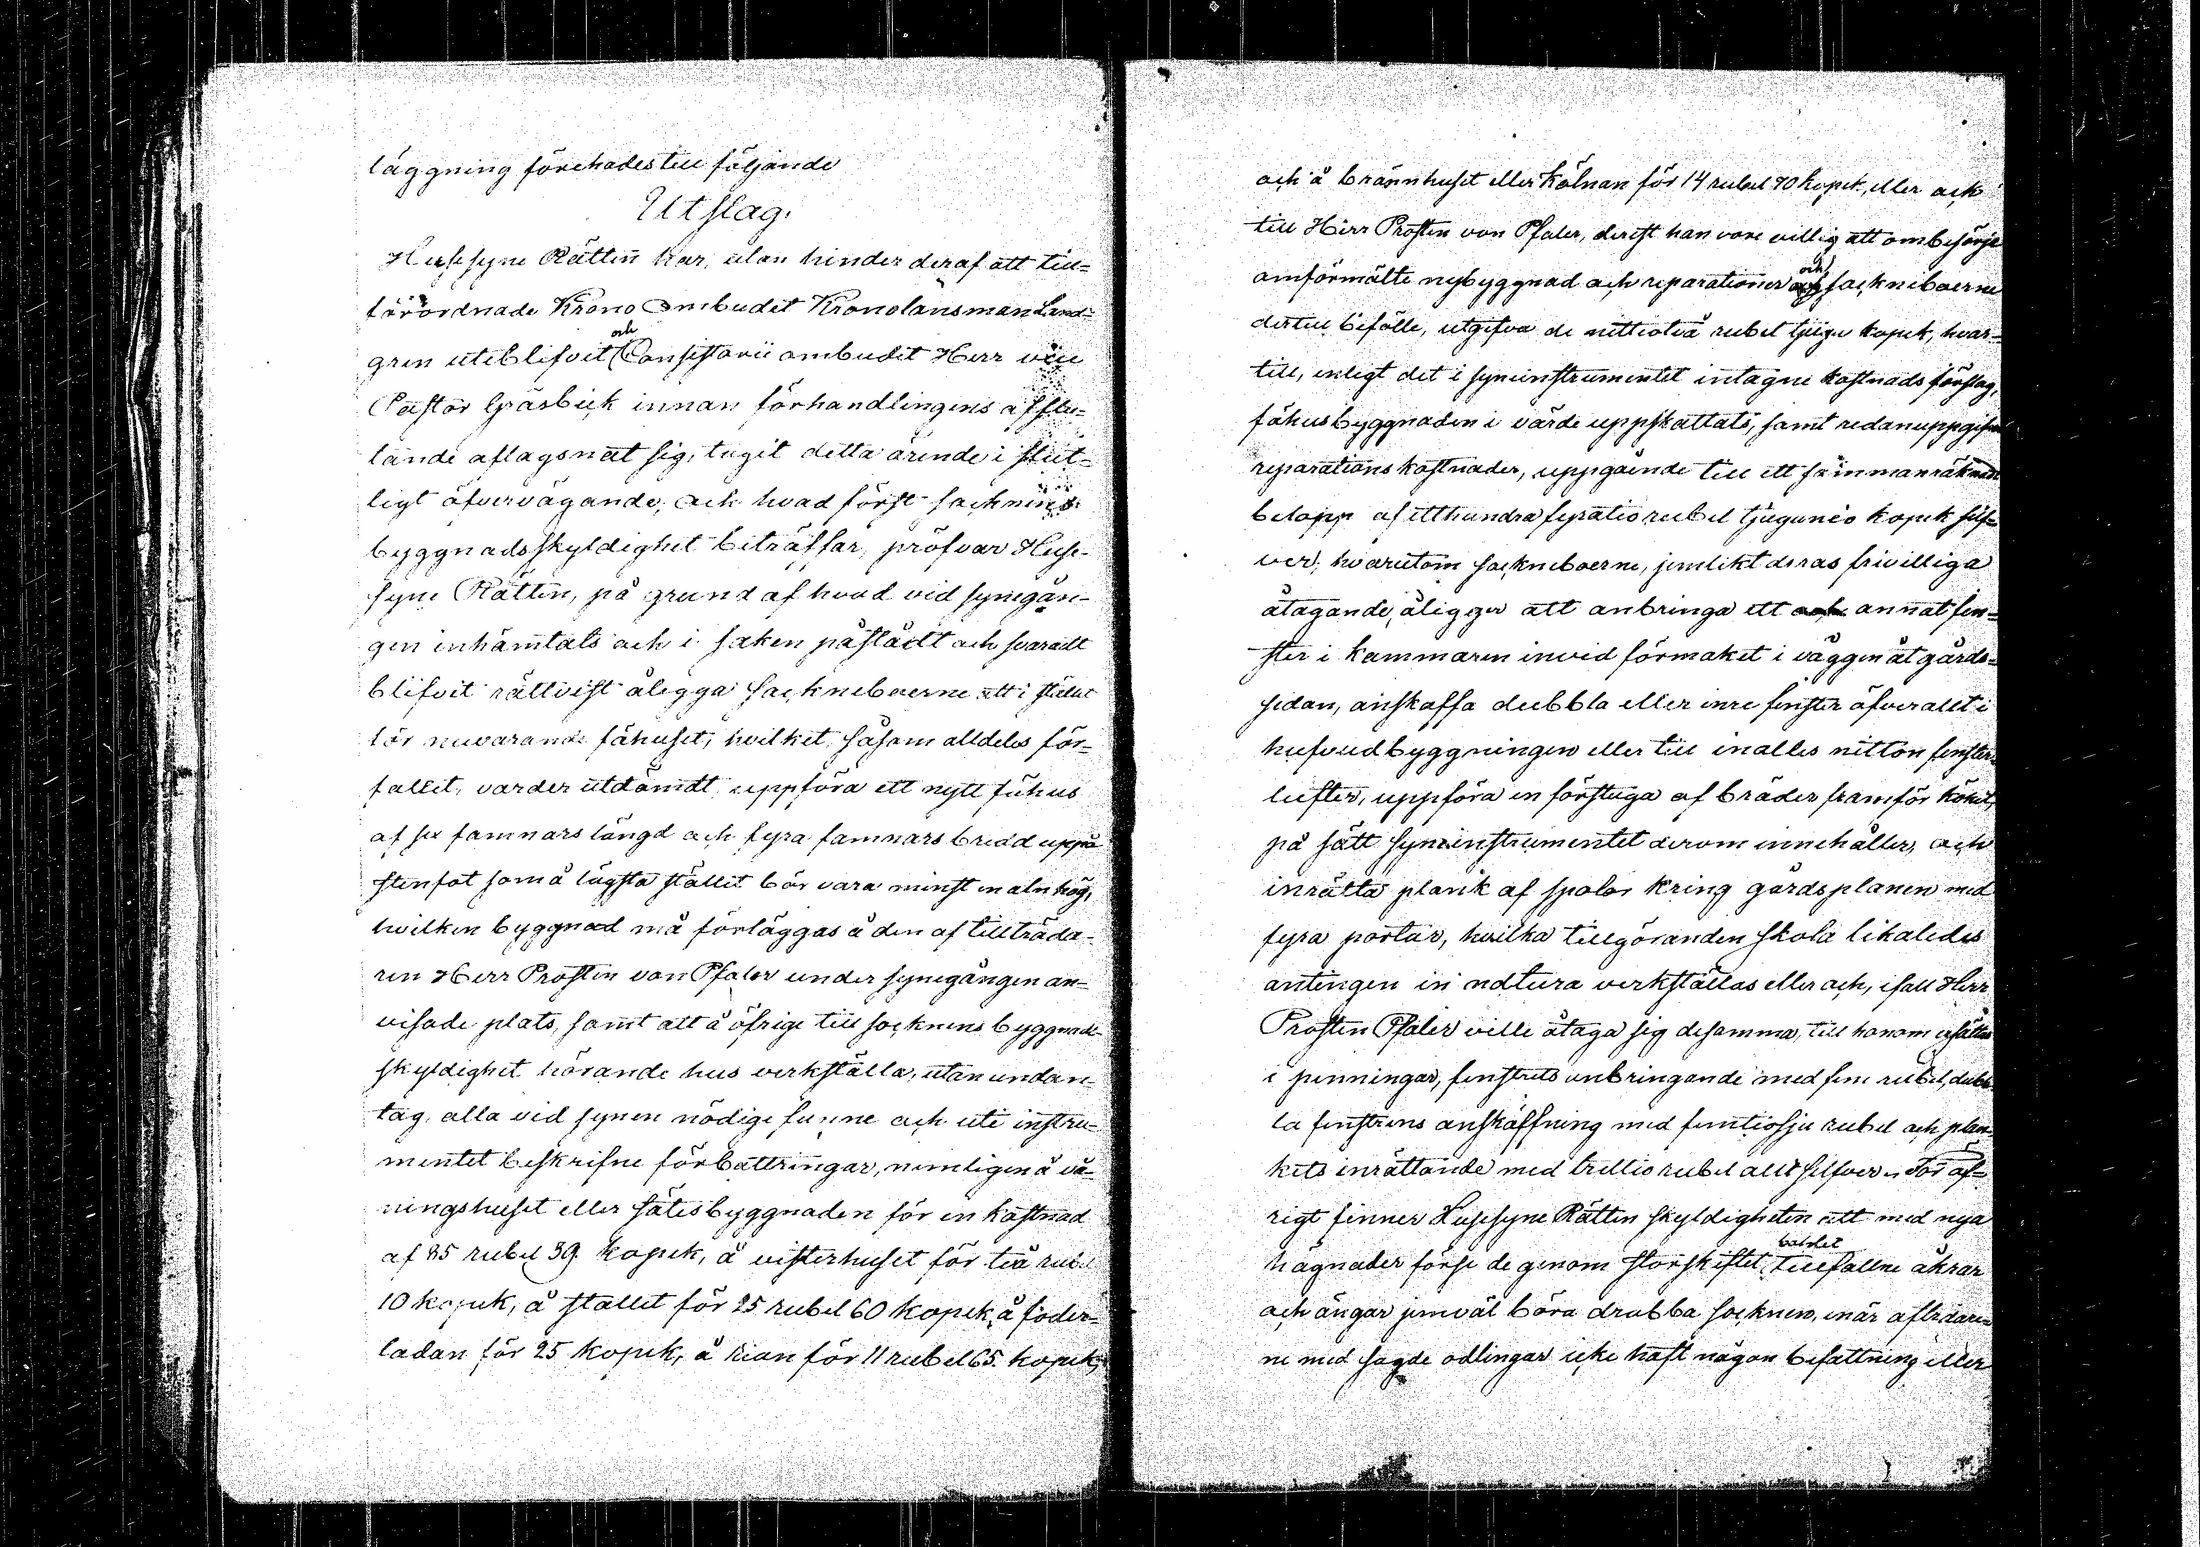 läggning förehades till följande
Utslag.
Husesyne Rätten har, utan hinder deraf att till-
förordnade Krono Ombudet Kronolänsman Lind-
gren uteblifvit och Consistorii ombudet Herr vice
Pastor Gräsbeck innan förhandlingens afslu-
tande aflagsnat sig, tagit detta ärende i slut-
ligt öfvervägande; och hvad först socknens
byggnadsskyldighet beträffar, pröfvar Huse-
syne Rätten, på grund af hvad vid synegån-
gen inhämtats och i saken påstådt och svaradt
blifvit rättvist ålägga sockneboerne att i stället
för nuvarande fähuset, hvilket, såsom alldeles för-
fallet, varder utdömdt, uppföra ett nytt fähus
af sex famnars längd och fyra famnars bredd uppå
stenfot som å lägsta stället bör vara minst en aln hög,
hvilken byggnad må förläggas å den af tillträda-
ren Herr Prosten von Pfaler under synegången an-
visade plats, samt att å öfrige till socknens byggnads-
skyldighet hörande hus verkställa, utan undan-
tag, alla vid synen nödige funne och uti instru-
mentet beskrifne förbättringar, nemligen å vå-
ningshuset eller sätesbyggnaden för en kostnad
af 85 rubel 39 kopek, å visterhuset för två rubel
10 kopek, å stallet för 25 rubel 60 kopek, å foder-
ladan för 25 kopek, å rian för 11 rubel 65 kopek,
och å brännhuset eller Kölnan för 14 rubel 70 kopek, eller ock
till Herr Prosten von Pfaler, derest han vore villig att ombesörja
omförmälte nybyggnad och reparationer och sockneboerne
dertill bifölle, utgifva de nittiotvå rubel tjugu kopek, hvar-
till, enligt det i syneinstrumentet intagne kostnads förslag,
fähusbyggnaden i värde uppskattats, samt redan uppgifne
reparations kostnader, uppgående till ett sammanräknadt
belopp af etthundra fyratio rubel tjugunio kopek silf-
ver; hvarutom sockneboerne, jemlikt deras frivilliga
åtagande, åligger att anbringa ett annat fen-
ster i kammaren invid förmaket i väggen åt gårds-
sidan, anskaffa dubbla eller inre fenster öfverallt i
hufvudbyggningen eller till inalles nitton fenster-
lufter, uppföra en förstuga af bräder framför köket,
på sätt syneinstrumentet derom innehåller, och
inrätta plank af spolor kring gårdsplanen med
fyra portar, hvilka tillgöranden skola likaledes
antingen in natura verkställas eller och, ifall Herr
Prosten Pfaler ville åtaga sig desamma, till honom ersättas
i penningar, fenstrets anbringande med fem rubel, dubb-
la fenstrens anskaffning med femtiosju rubel och plan-
kets inrättande med trettio rubel allt silfver. För öf-
rigt finner Husesyne Rätten skyldigheten att med nya
hägnader förse de genom storskiftet bolet tillfallne åkrar
och ängar jemväl böra drabba socknen, enär afträdare-
ne med sagde odlingar icke haft någon befattning eller